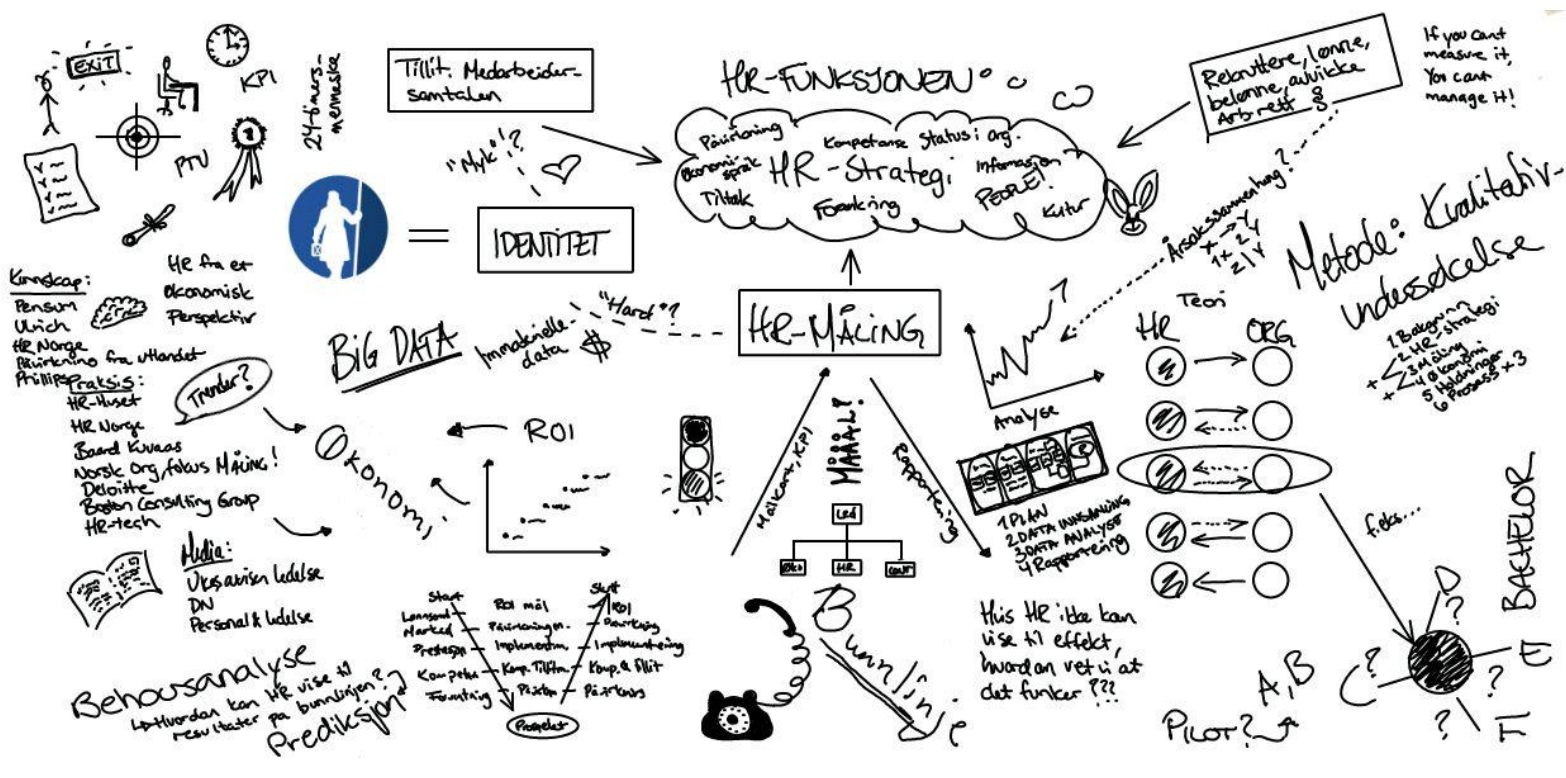 EXIT
KPI
PTU
24-timers-
menneske
Tillit. Medarbeider-
samtalen
"Myk"?
=
IDENTITET
HR-FUNKSJONEN
Påvirkning
Kompetanse Status i org.
Økonomi
språk
HR-Strategi
Informasjon
PEOPLE!
Tiltak
Forankring
Kultur
Rekruttere, lønne,
belønne, avvikke
Arb.rett §
If you cant
measure it,
You cant
manage it!
Årsakssammenheng?
X → Y
1X 2Y
Z | Y
Metode: Kvalitativ-
undersøkelse
1 Bakgrunn
2 HR-strategi
3 Måling
4 Økonomi
5 Holdninger
6 Prosess x 3
Kunnskap:
Pensum
Ulrich
HR Norge
Påvirkning fra utlandet
Phillips
HR fra et
Økonomisk
Perspektiv
Praksis:
HR-Huset
HR Norge
Baard Kuvaas
Norsk Org, fokus MÅLING!
Deloitte
Boston Consulting Group
HR-tech
Trender?
Media:
Ukesavisen ledelse
DN
Personal & ledelse
BIG DATA
Immaterielle-
data $
"Hard"?
HR-MÅLING
Økonomi
ROI
Målkort, KPI
MÅÅÅL!
Rapportering
Led
Øko
HR
Bunnlinje
Analyse
1 PLAN
2 DATA INNSAMLING
3 DATA ANALYSE
4 Rapportering
Teori
HR
ORG
f.eks...
BACHELOR
D
?
E
?
F
?
C
?
A, B
PILOT?
Hvis HR ikke kan
vise til effekt,
hvordan vet vi at
det funker ???
Start
Slutt
Lønnsomt
ROI mål
ROI
Marked
Påvirkning
Prestasjon
Implementering
Kompetse
Komp. Tillit
Komp. & tillit
Prosjekt
Behovsanalyse
↳ Hvordan kan HR vise til
resultater på bunnlinjen?
Prediksjon